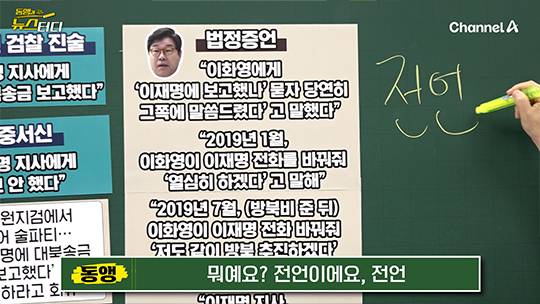 동앵과 뉴스터디
Channel A
검찰 진술
지사에게
송금 보고했다”
중서신
명 지사에게
안 했다”
원지검에서
어 술파티…
명에 대북송금
보고했다’
하라고 회유
법정증언
“이화영에게
‘이재명에 보고했니’ 묻자 당연히
그쪽에 말씀드렸다’고 말했다”
“2019년 1월,
이화영이 이재명 전화를 바꿔줘
‘열심히 하겠다’고 말해”
“2019년 7월, (방북비 준 뒤)
이화영이 이재명 전화 바꿔줘
‘저도 같이 방북 추진하겠다’
“이재명 지사
전언
동앵 뭐예요? 전언이에요, 전언